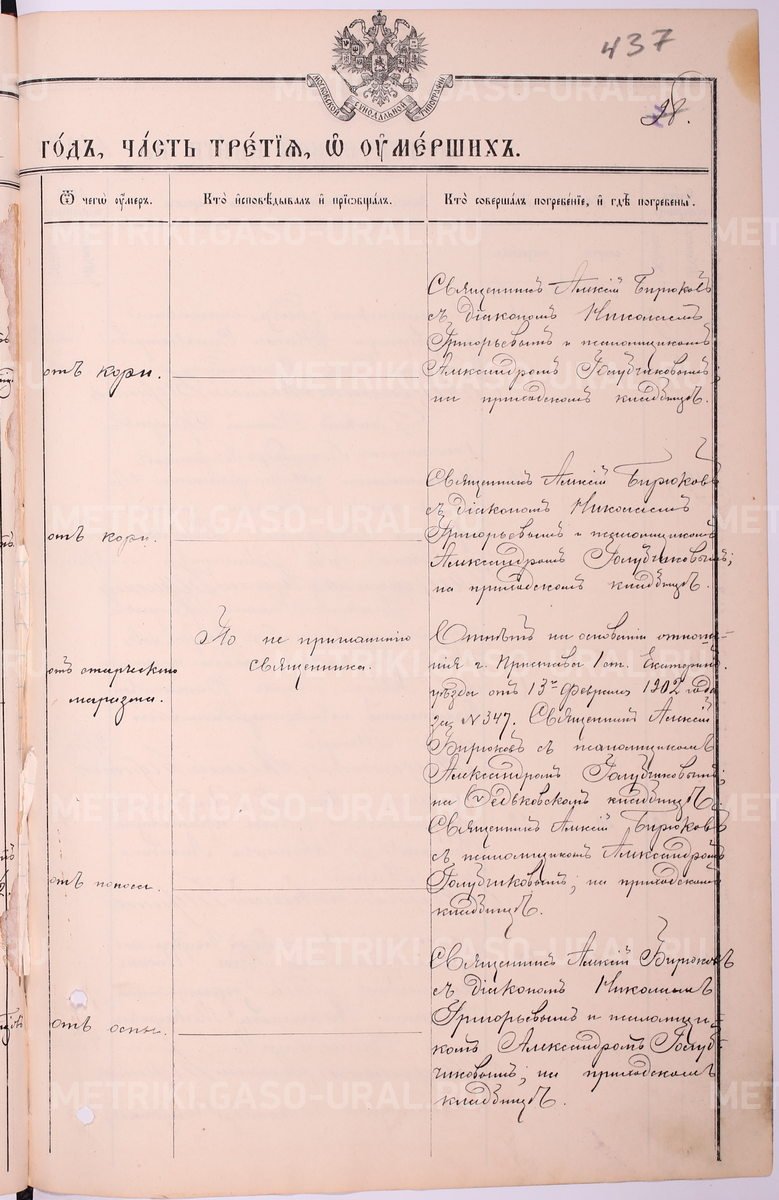 437
28.
МОСКОВСКОЙ СѴНОДАЛЬНОЙ ТИПОГРАФІИ
ГО́ДЪ, ЧА́СТЬ ТРЕ́ТІѦ, Ѡ҆ ОУ҆МЕ́РШИХЪ.
Ѿ чегѡ̀ оу҆́мер.
Кто̀ и҆сповѣ́дывалъ и҆ прїѡбща́лъ.
Кто̀ соверша́лъ погребе́нїе, и҆ гдѣ̀ погребены̀.
Священникъ Алексій Бирюковъ
съ діакономъ Николаемъ
Григорьевымъ и псаломщикомъ
отъ кори.
Александромъ Голубчиковымъ;
на приходскомъ кладбищѣ.
Священникъ Алексій Бирюковъ
съ діакономъ Николаемъ
отъ кори.
Григорьевымъ и псаломщикомъ
Александромъ Голубчиковымъ;
на приходскомъ кладбищѣ.
отъ старческаго
маразма.
не приглашенію
священника.
Отпѣтъ на основаніи отноше-
нія г. Пристава 1 ст. Екатерин.
уѣзда отъ 13го февраля 1902 года
за № 347. Священникъ Алексій
Бирюковъ съ псаломщикомъ
Александромъ Голубчиковымъ;
на Федьковскомъ кладбищѣ.
Священникъ Алексій Бирюковъ
съ псаломщикомъ Александромъ
отъ поноса.
Голубчиковымъ; на приходскомъ
кладбищѣ.
Священникъ Алексій Бирюковъ
съ діакономъ Николаемъ
отъ оспы.
Григорьевымъ и псаломщи-
комъ Александромъ Голуб-
чиковымъ; на приходскомъ
кладбищѣ.
METRIKI.GASO-URAL.RU